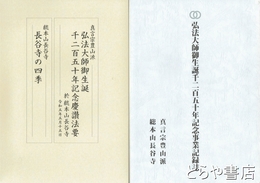 真言宗豊山派
弘法大師御生誕
千二百五十年記念慶讃法要
於 総本山長谷寺
総本山長谷寺
長谷寺の四季
弘法大師御生誕千二百五十年記念事業記録集
真言宗豊山派
総本山長谷寺
とらや書房